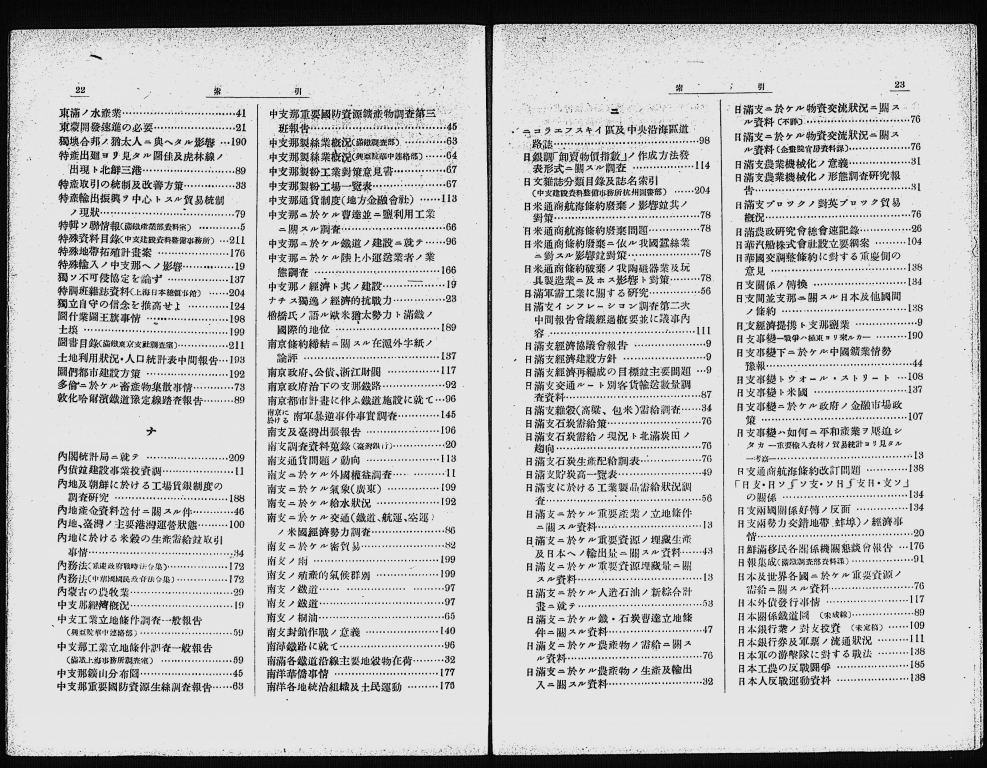 22
索引
東滿ノ水產業…41
東蒙開發速進の必要…21
獨墺合邦ノ猶太人ニ與ヘタル影響…190
特產出廻ヨリ見タル圖佳及虎林線ノ
出現ト北鮮三港…89
特產取引の統制及改善方策…33
特產輸出振興ヲ中心トスル貿易統制
ノ現狀…79
特輯ソ聯情報(滿鐵產業部資料室)…5
特殊資料目錄(中支建設資料整備事務所)…211
特殊地帶拓殖計畫案…176
特殊輸入ノ中支那ヘノ影響…19
獨ソ不可侵協定を論ず…137
特調班雜誌資料(上海日本總領事館)…204
獨立自守の信念を推高せよ…124
圖什業圖王旗事情…198
土壤…199
圖書目錄(滿鐵東京支社調查室)…211
土地利用狀況・人口統計表中間報告…193
圖們都市建設方策…192
多倫ニ於ケル畜產物集散事情…73
敦化哈爾濱鐵道豫定線踏查報告…89
ナ
內閣統計局ニ就テ…209
內債並建設事業投資調…11
內地及朝鮮に於ける工場賃銀制度の
調查研究…188
內地產金資料送付ニ關スル件…46
內地、臺灣ノ主要港灣運營狀態…100
內地に於ける米穀の生產需給竝取引
事情…34
內務法(重慶政府戰時法令集)…172
內務法(中華國國民政府法令集)…172
內蒙古の農牧業…29
中支那經濟概況…19
中支工業立地條件調查一般報告
(興亞院華中連絡部)…59
中支那工業立地條件調查一般報告
(滿鐵上海事務所調查室)…59
中支那鑛山分布圖…45
中支那重要國防資源生絲調查報告…63
中支那重要國防資源鑛產物調查第三
班報告…45
中支那製絲業概況(滿鐵調查部)…63
中支那製絲業概況(興亞院華中連絡部)…64
中支那製粉工業對策意見書…67
中支那製粉工場一覽表…67
中支那通貨制度(地方金融會社)…113
中支那ニ於ケル曹達並ニ鹽利用工業
ニ關スル調查…66
中支那ニ於ケル鐵道ノ建設ニ就テ…96
中支那ニ於ケル陸上小運送業者ノ業
態調查…166
中支那ノ經濟ト其ノ建設…19
ナチス獨逸ノ經濟的抗戰力…23
楢橋氏ノ語ル歐米猶太勢力ト滿鐵ノ
國際的地位…189
南京條約締結ニ關スル在滬外字紙ノ
論評…137
南京政府、公債、浙江財閥…117
南京政府治下の支那鐵路…92
南京都市計畫に伴ふ鐵道施設に就て…96
南京に於ける 南軍暴逆事件事實調查…145
南支及臺灣出張報告…196
南支調查資料蒐錄(臺灣銀行)…20
南支通貨問題ノ動向…113
南支ニ於ケル外國權益調查…11
南支ニ於ケル氣象(廣東)…199
南支ニ於ケル給水狀況…192
南支ニ於ケル交通(鐵道、航運、空運)
ノ米國經濟勢力調查…86
南支ニ於ケル密貿易…82
南支ノ雨…199
南支ノ殖產的氣候群別…199
南支ノ鐵道…97
南支ノ鐵道…97
南支ノ桐油…65
南支封鎖作戰ノ意義…140
南潯鐵路に就て…96
南滿各鐵道沿線主要地穀物在荷…32
南洋華僑事情…177
南洋各地統治組織及土民運動…175
索引
23
ニ
ニコラエフスキイ區及中央沿海區道
路誌…98
日銀調「卸賣物價指數」ノ作成方法發
表形式ニ關スル調查…114
日文雜誌分類目錄及誌名索引
(中支建設資料整備事務所杭州調警部)…204
日米通商航海條約廢棄ノ影響竝其ノ
對策…78
日米通商航海條約廢棄問題…78
日米通商條約廢棄ニ依ル我國蠶絲業
ニ對スル影響竝對策…78
日米通商條約破棄ノ我陶磁器業及玩
具製造業ニ及ホス影響ト對策…78
日滿軍需工業に關する研究…56
日滿支インフレーション調查第二次
中間報告會議經過概要並に議事內
容…111
日滿支經濟協議會報告…9
日滿支經濟建設方針…9
日滿支經濟再編成の目標竝主要問題…9
日滿支交通ルート別客貨輸送數量調
查資料…87
日滿支雜穀(高粱、包米)需給調查…34
日滿支石炭需給策…76
日滿支石炭需給ノ現況ト北滿炭田ノ
趨向…76
日滿支石炭生產配給調表…76
日滿支貯炭高一覽表…49
日滿支に於ける工業製品需給狀況調
查…56
日滿支ニ於ケル重要產業ノ立地條件
ニ關スル資料…13
日滿支ニ於ケル重要資源ノ埋藏生產
及日本ヘノ輸出量ニ關スル資料…43
日滿支ニ於ケル重要資源埋藏量ニ關
スル資料…13
日滿支ニ於ケル人造石油ノ新綜合計
畫ニ就テ…53
日滿支ニ於ケル鐵・石炭曹達立地條
件ニ關スル資料…47
日滿支ニ於ケル農產物ノ需給ニ關ス
ル資料…76
日滿支ニ於ケル農產物ノ生產及輸出
入ニ關スル資料…32
日滿支ニ於ケル物資交流狀況ニ關ス
ル資料(不詳)…76
日滿支ニ於ケル物資交流狀況ニ關ス
ル資料(企畫院官房資料課)…76
日滿支農業機械化ノ意義…31
日滿支農業機械化ノ形態調查研究報
告…31
日滿支ブロックノ對英ブロック貿易
概況…76
日滿農政硏究會總會速記錄…26
日華汽船株式會社設立要綱案…104
日華國交調整條約に對する重慶側の
意見…138
日支關係の轉換…134
日支間並支那ニ關スル日本及他國間
ノ條約…138
日支經濟提携ト支那鹽業…9
日支事變―戰爭ハ極東ヨリ來ルカ―…190
日支事變下ニ於ケル中國鑛業情勢
豫報…44
日支事變トウォール・ストリート…108
日支事變ト米國…137
日支事變ニ於ケル政府ノ金融市場政
策…107
日支事變ハ如何ニ平和產業ヲ壓迫シ
タカ―重要輸入資材ノ貿易統計ヨリ見タル
一考察―…13
日支通商航海條約改訂問題…138
「日支・日ソ」「ソ支・ソ日」「支日・支ソ」
の關係…134
日支兩國關係好轉ノ反面…134
日支兩勢力交錯地帶(蚌埠)ノ經濟事
情…20
日鮮滿移民各關係機關懇談會報告…176
日報集成(滿鐵調查部資料課)…91
日本及世界各國ニ於ケル重要資源ノ
需給ニ關スル資料…76
日本外債發行事情…117
日本關係鐵道圖(未成線)…89
日本銀行業ノ對支投資(未定稿)…109
日本銀行券及軍票ノ流通狀況…111
日本軍の游擊隊に對する戰法…138
日本工農の反戰鬪爭…185
日本人反戰運動資料…138